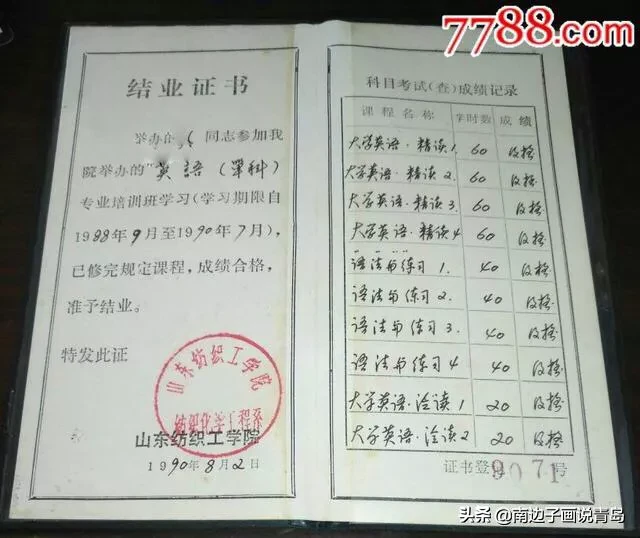 7788.com
结业证书
举办的 同志参加我
院举办的"英语(单科)
专业培训班学习(学习期限自
1988年9月至1990年7月),
已修完规定课程,成绩合格,
准予结业。
特发此证
山东纺织工学院
纺织化学工程系
山东纺织工学院
1990年8月2日
科目考试(查)成绩记录
课程名称 学时数 成绩
大学英语·精读1. 60 及格
大学英语·精读2. 60 及格
大学英语·精读3. 60 及格
大学英语·精读4 60 及格
语法与练习1. 40 及格
语法与练习2. 40 及格
语法与练习3. 40 及格
语法与练习4 40 及格
大学英语·泛读1 20 及格
大学英语·泛读2 20 及格
证书登 9071号
头条 @南边子画说青岛